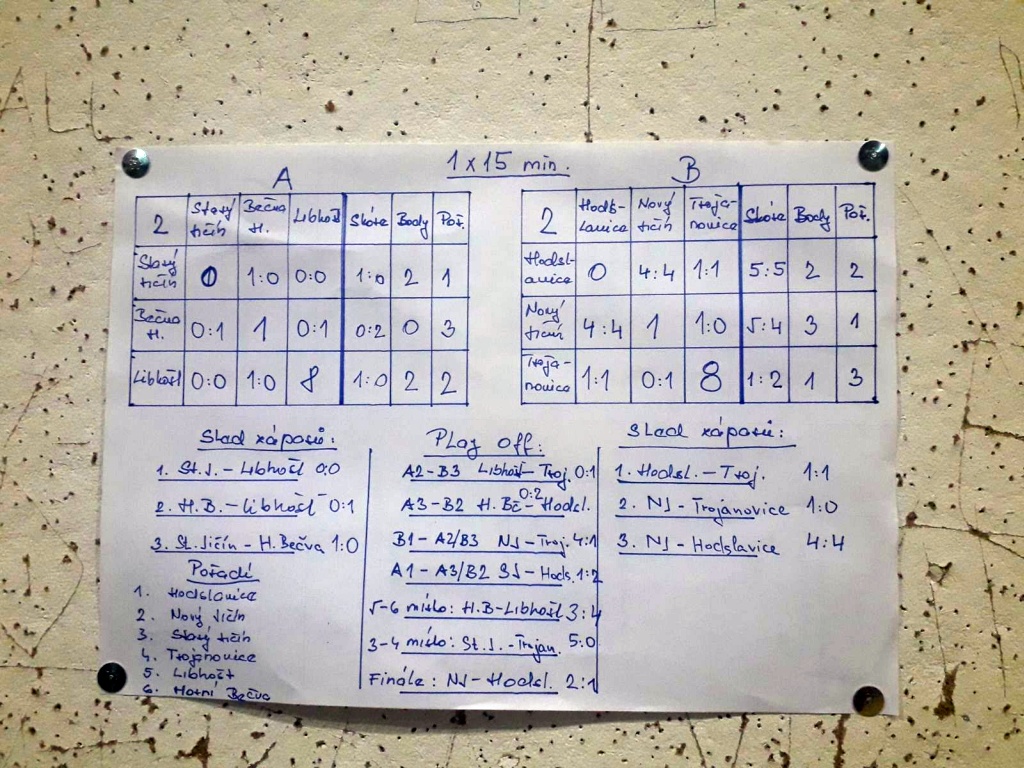 1 x 15 min.
A
2 Starý Jičín Bečva H. Libhošť Skóre Body Poř.
Starý Jičín 0 1:0 0:0 1:0 2 1
Bečva H. 0:1 1 0:1 0:2 0 3
Libhošť 0:0 1:0 8 1:0 2 2
B
2 Hodslavice Nový Jičín Trojanovice Skóre Body Poř.
Hodslavice 0 4:4 1:1 5:5 2 2
Nový Jičín 4:4 1 1:0 5:4 3 1
Trojanovice 1:1 0:1 8 1:2 1 3
Sled zápasů:
1. St.J. - Libhošť 0:0
2. H.B. - Libhošť 0:1
3. St. Jičín - H. Bečva 1:0
Pořadí
1. Hodslavice
2. Nový Jičín
3. Starý Jičín
4. Trojanovice
5. Libhošť
6. Horní Bečva
Play off:
A2-B3 Libhošť-Troj. 0:1
A3-B2 H. Bč-Hodsl. 0:2
B1-A2/B3 NJ-Troj. 4:1
A1-A3/B2 SJ-Hods. 1:2
5-6 místo: H.B-Libhošť 3:4
3-4 místo: St. J.-Trojan. 5:0
Finále: NJ-Hodsl. 2:1
Sled zápasů:
1. Hodsl. - Troj. 1:1
2. NJ - Trojanovice 1:0
3. NJ - Hodslavice 4:4